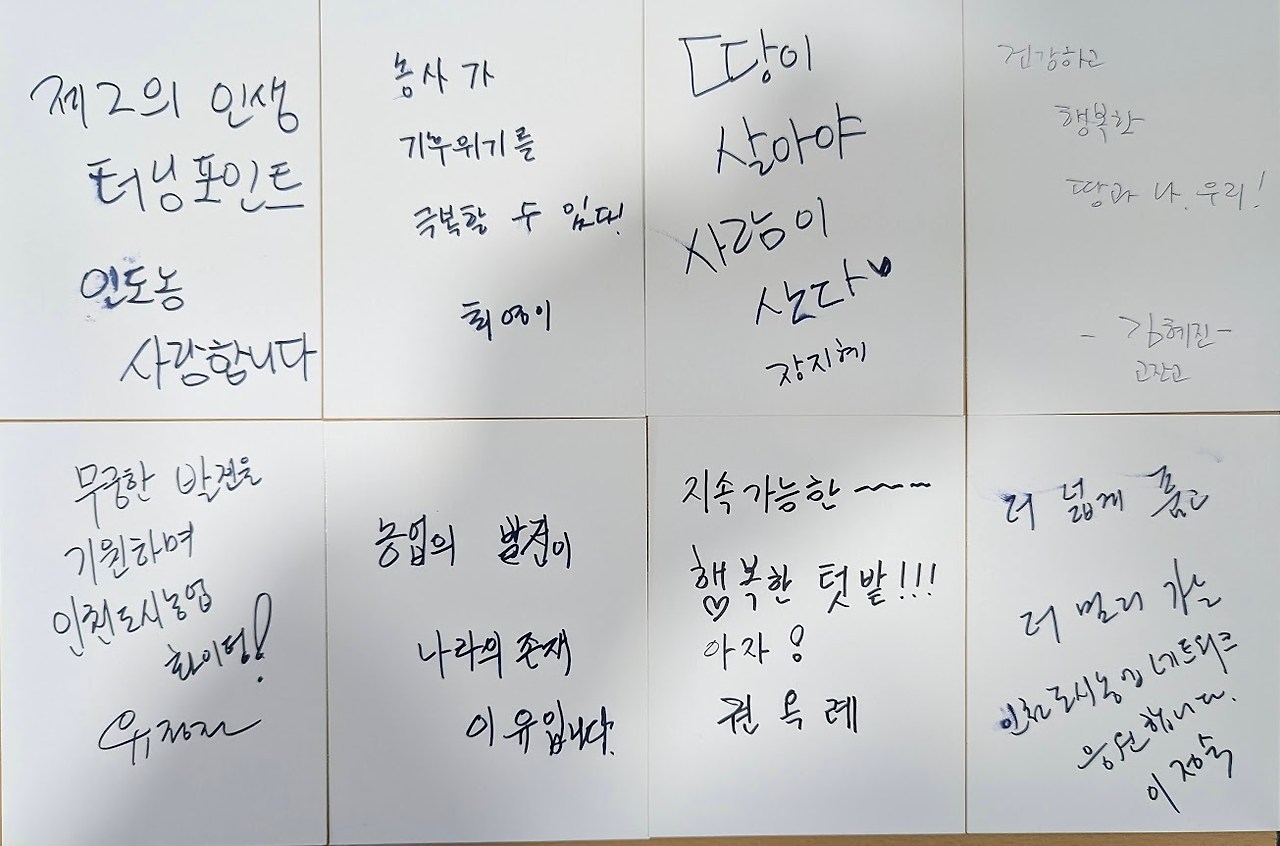 제2의 인생
터닝포인트
인도농
사랑합니다
농사가
기후위기를
극복할 수 있다!
최영이
땅이
살아야
사람이
산다♥
장지혜
건강하고
행복한
땅과 나, 우리!
- 김혜진 -
고잔고
무궁한 발전을
기원하며
인천도시농업
화이팅!
농업의 발전이
나라의 존재
이유입니다.
지속가능한 ~~~~
행복한 텃밭!!!
♡
아자!
권옥례
더 넓게 품고
더 멀리 가는
인천도시농업네트워크
응원합니다.
이정숙